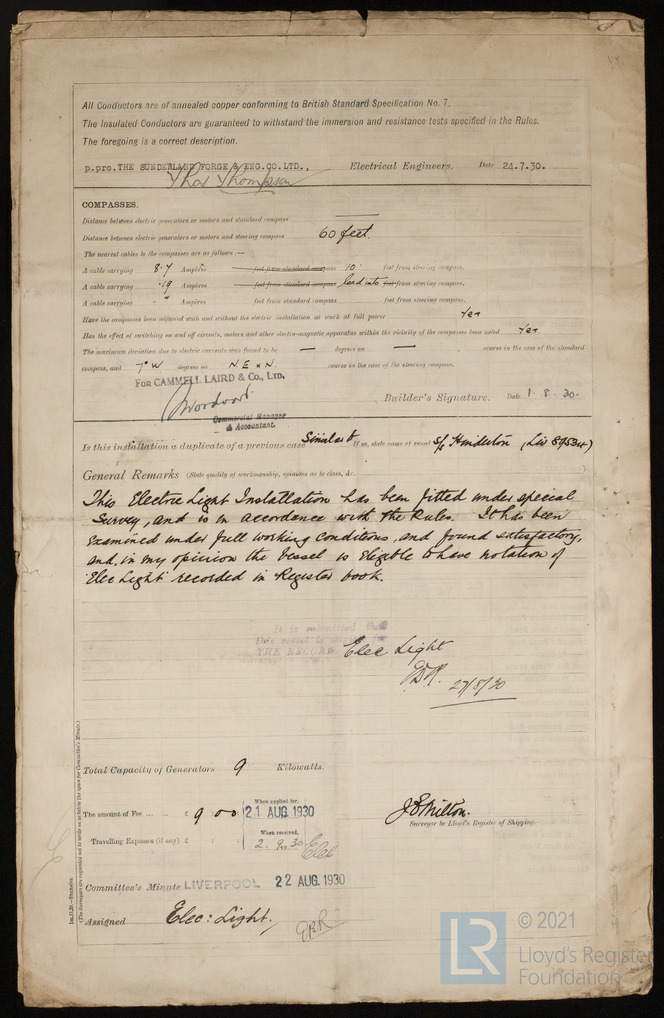 All Conductors are of annealed copper conforming to British Standard Specification No. 7.
The Insulated Conductors are guaranteed to withstand the immersion and resistance tests specified in the Rules.
The foregoing is a correct description.
p.pro. THE SUNDERLAND FORGE & ENG.CO.LTD., Electrical Engineers. Date 24.7.30.
Thos Thompson
COMPASSES.
Distance between electric generators or motors and standard compass
Distance between electric generators or motors and steering compass 60 feet
The nearest cables to the compasses are as follows:—
A cable carrying 8.7 Ampères feet from standard compass 10 feet from steering compass.
A cable carrying .19 Ampères feet from standard compass lead into feet from steering compass.
A cable carrying " Ampères feet from standard compass feet from steering compass.
Have the compasses been adjusted with and without the electric installation at work at full power Yes
Has the effect of switching on and off circuits, motors and other electro-magnetic apparatus within the vicinity of the compasses been noted Yes
The maximum deviation due to electric currents was found to be — degrees on — course in the case of the standard
compass, and degrees on course in the case of the steering compass.
FOR CAMMELL LAIRD & Co., LTD.
Commercial Manager
& Accountant.
Builder's Signature. Date 1.8.30.
Is this installation a duplicate of a previous case Similar to If so, state name of vessel (Liv 89534)
General Remarks (State quality of workmanship, opinions as to class, &c.
This Electric Light Installation has been fitted under special
Survey, and is in accordance with the Rules. It has been
examined under full working conditions, and found satisfactory,
and, in my opinion the vessel is eligible to have notation of
"Elec Light" recorded in Register book.
It is submitted that
this vessel is eligible for
THE RECORD. Elec Light
27/8/30
Total Capacity of Generators 9 Kilowatts.
The amount of Fee ... ... £ 9 : 00 : When applied for, 21 AUG 1930
Travelling Expenses (if any) £ : : When received, 2.9.30
J E Milton.
Surveyor to Lloyd's Register of Shipping.
Committee's Minute LIVERPOOL 22 AUG 1930
Assigned Elec: Light.
(The Surveyors are requested not to write on or below the space for Committee's Minute.)
LR © 2021
Lloyd's Register
Foundation